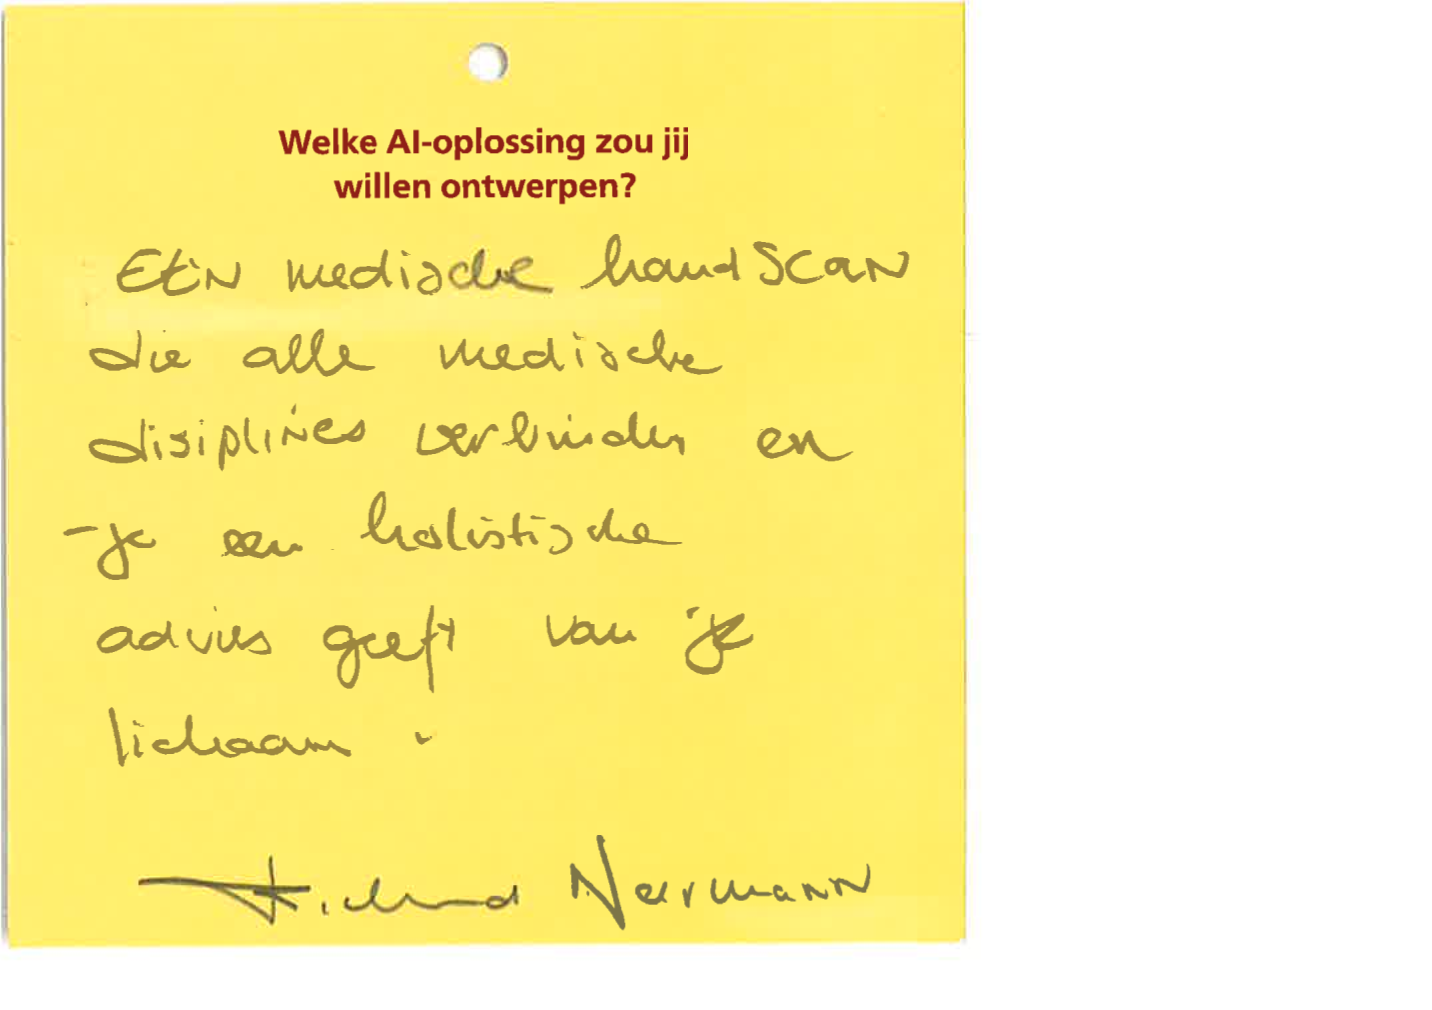 Welke AI-oplossing zou jij
willen ontwerpen?
EEN medische handscan
die alle medische
disiplines verbinden en
je een holistische
advies geeft van je
lichaam.
Neermann